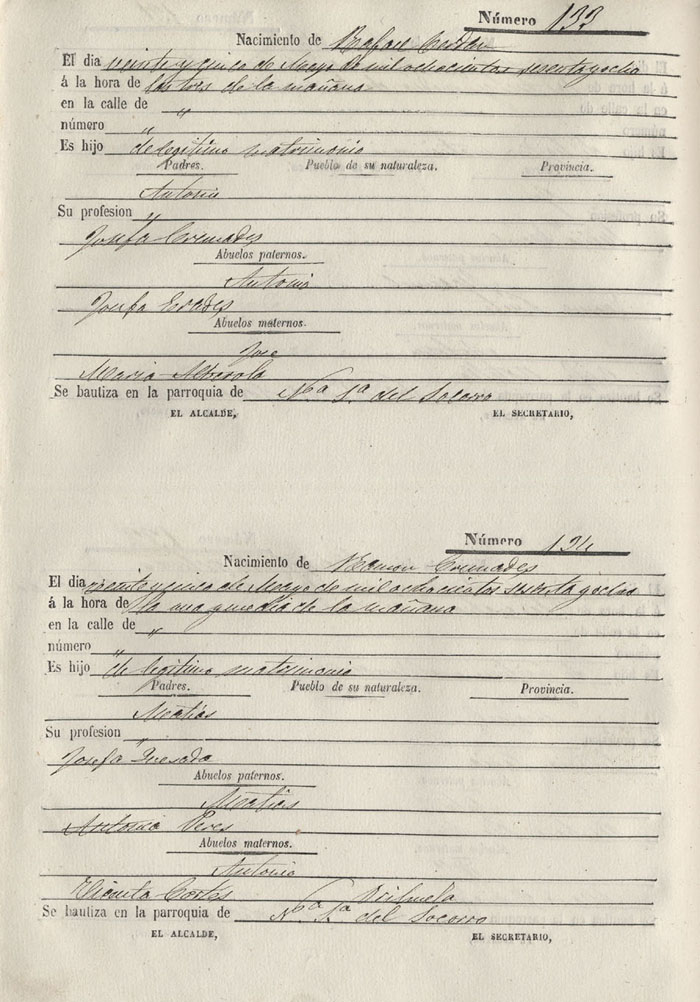 Número 133
Nacimiento de Rafael Cerdán
El dia veinte y cinco de Mayo de mil ochocientos sesenta y ocho
á la hora de las tres de la mañana
en la calle de "
número "
Es hijo de legítimo matrimonio
Padres. Pueblo de su naturaleza. Provincia.
Antonio
Su profesion "
Josefa Cremades
Abuelos paternos.
Antonio
Josefa
Abuelos maternos.
Jose
Maria Alberola
Se bautiza en la parroquia de Nª Sª del Socorro
EL ALCALDE, EL SECRETARIO,
Número 134
Nacimiento de Ramon Cremades
El dia veinte y cinco de Mayo de mil ochocientos sesenta y ocho
á la hora de la una y media de la mañana
en la calle de "
número "
Es hijo de legítimo matrimonio
Padres. Pueblo de su naturaleza. Provincia.
Matias
Su profesion
Josefa Quesada
Abuelos paternos.
Matias
Antonia Peres
Abuelos maternos.
Antonio
Vicenta Cortés Orihuela
Se bautiza en la parroquia de Nª Sª del Socorro
EL ALCALDE, EL SECRETARIO,